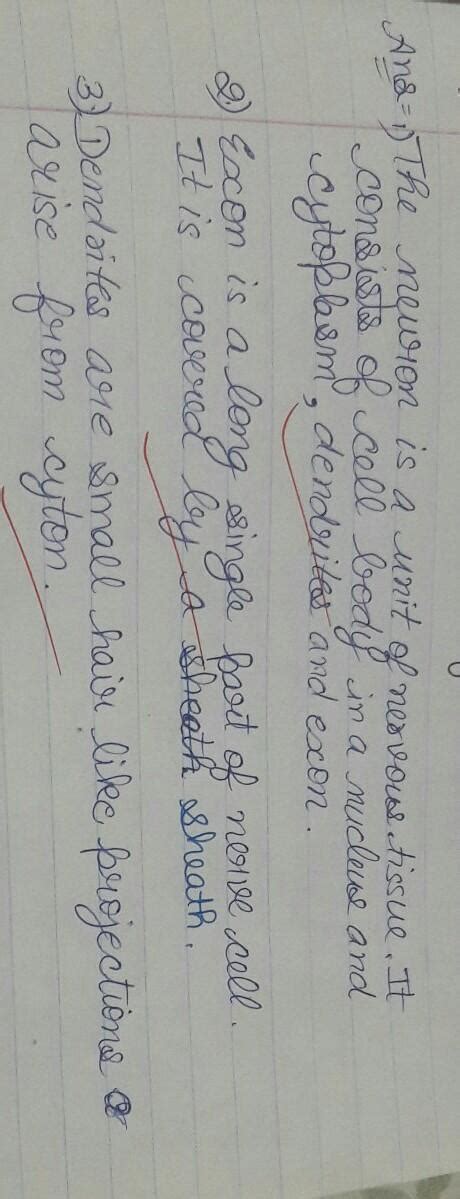 Ans = 1) The neuron is a unit of nervous tissue. It
consists of cell body in a nucleus and
cytoplasm, dendrites and exon.
2) Exon is a long single part of nerve cell.
It is covered by a sheath sheath.
3) Dendrites are small hair like projections
arise from cyton.